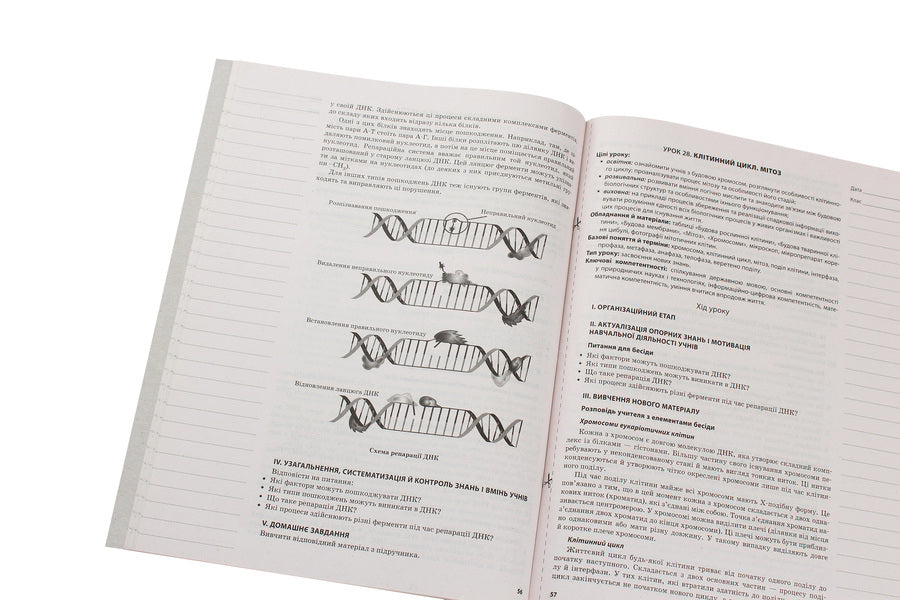 у своїй ДНК. Здійснюються ці процеси складними комплексами ферментів,
до складу яких входить відразу кілька білків.
Одні з цих білків знаходять місце пошкодження. Наприклад, там, де за-
мість пари А-Т стоїть пара А-Г. Інші білки розплітають цю ділянку ДНК і ви-
даляють помилковий нуклеотид, а потім на це місце поміщається правильний
нуклеотид. Репараційна система вважає правильним той нуклеотид, який
розташований у старому ланцюзі ДНК. Цей ланцюг ферменти можуть
ти за мітками на нуклеотидах (до деяких з них приєднуються метильні гру-
пи -CH₃).
Для інших типів пошкоджень ДНК теж існують групи ферментів, які зна-
ходять та виправляють ці порушення.
Розпізнавання пошкодження
Неправильний нуклеотид
Видалення неправильного нуклеотиду
Встановлення правильного нуклеотиду
Відновлення ланцюга ДНК
Схема репарації ДНК
IV. УЗАГАЛЬНЕННЯ, СИСТЕМАТИЗАЦІЯ Й КОНТРОЛЬ ЗНАНЬ І ВМІНЬ УЧНІВ
Відповісти на питання:
• Які фактори можуть пошкоджувати ДНК?
• Які типи пошкоджень можуть виникати в ДНК?
• Що таке репарація ДНК?
• Які процеси здійснюють різні ферменти під час репарації ДНК?
V. ДОМАШНЄ ЗАВДАННЯ
Вивчити відповідний матеріал з підручника.
56
УРОК 28. КЛІТИННИЙ ЦИКЛ. МІТОЗ
Дата
Клас
Цілі уроку:
• освітня: ознайомити учнів з будовою хромосом, розглянути особливості клітинно-
го циклу; проаналізувати процес мітозу та особливості його стадій;
• розвивальна: розвивати вміння логічно мислити та знаходити зв'язки між будовою
біологічних структур та особливостями їхнього функціонування;
• виховна: на прикладі процесів збереження та реалізації спадкової інформації вихо-
вувати розуміння єдності всіх біологічних процесів у живих організмах і важливості
цих процесів для існування життя.
Обладнання й матеріали: таблиці «Будова рослинної клітини», «Будова тваринної клі-
тини», «Будова мембрани», «Мітоз», «Хромосоми», мікроскоп, мікропрепарат коре-
ня цибулі, фотографії мітотичних клітин.
Базові поняття й терміни: хромосома, клітинний цикл, мітоз, поділ клітини, інтерфаза,
профаза, метафаза, анафаза, телофаза, веретено поділу.
Тип уроку: засвоєння нових знань.
Ключові компетентності: спілкування державною мовою, основні компетентності
у природничих науках і технологіях, інформаційно-цифрова компетентність, мате-
матична компетентність, уміння вчитися впродовж життя.
Хід уроку
I. ОРГАНІЗАЦІЙНИЙ ЕТАП
II. АКТУАЛІЗАЦІЯ ОПОРНИХ ЗНАНЬ І МОТИВАЦІЯ
НАВЧАЛЬНОЇ ДІЯЛЬНОСТІ УЧНІВ
Питання для бесіди
• Які фактори можуть пошкоджувати ДНК?
• Які типи пошкоджень можуть виникати в ДНК?
• Що таке репарація ДНК?
• Які процеси здійснюють різні ферменти під час репарації ДНК?
III. ВИВЧЕННЯ НОВОГО МАТЕРІАЛУ
Розповідь учителя з елементами бесіди
Хромосоми еукаріотичних клітин
Кожна з хромосом є довгою молекулою ДНК, яка утворює складний комп-
лекс із білками — гістонами. Більшу частину свого існування хромосоми пе-
ребувають у неконденсованому стані й мають вигляд тонких ниток. Ці нитки
конденсуються й утворюють чітко окреслені хромосоми лише під час клітин-
ного поділу.
Під час поділу клітини майже всі хромосоми мають Х-подібну форму. Це
пов'язано з тим, що в цей момент кожна з хромосом складається з двох одна-
кових ниток (хроматид), які з'єднані між собою. Точка з'єднання хроматид на-
зивається центромерою. У хромосоми можна виділити плечі (ділянки від місця
з'єднання двох хроматид до кінця хромосоми). Ці плечі можуть бути приблиз-
но однаковими або мати різну довжину. У такому випадку виділяють довге
й коротке плече хромосоми.
Клітинний цикл
Життєвий цикл будь-якої клітини триває від початку одного поділу до
початку наступного. Складається з двох основних частин — процесу поді-
лу й інтерфази. У тих клітин, які втратили здатність до поділу,
цикл закінчується не початком нового циклу, а
57